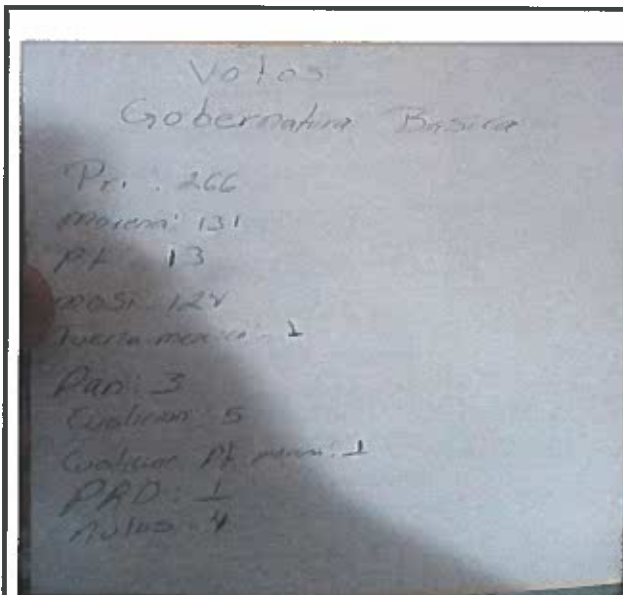 Votos
Gobernatura Basica
Pri : 266
morena: 131
pt 13
Fuerza mexico: 1
Pan: 3
Cualicion: 5
Cualicion Pt morena: 1
PRD: 1
nulos: 4